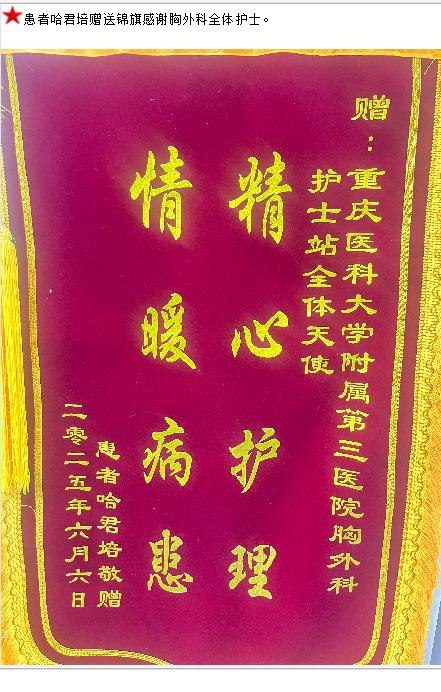 患者哈君培赠送锦旗感谢胸外科全体护士。
赠：重庆医科大学附属第三医院胸外科
护士站全体天使
精心护理
情暖病患
患者哈君培敬赠
二零二五年六月六日